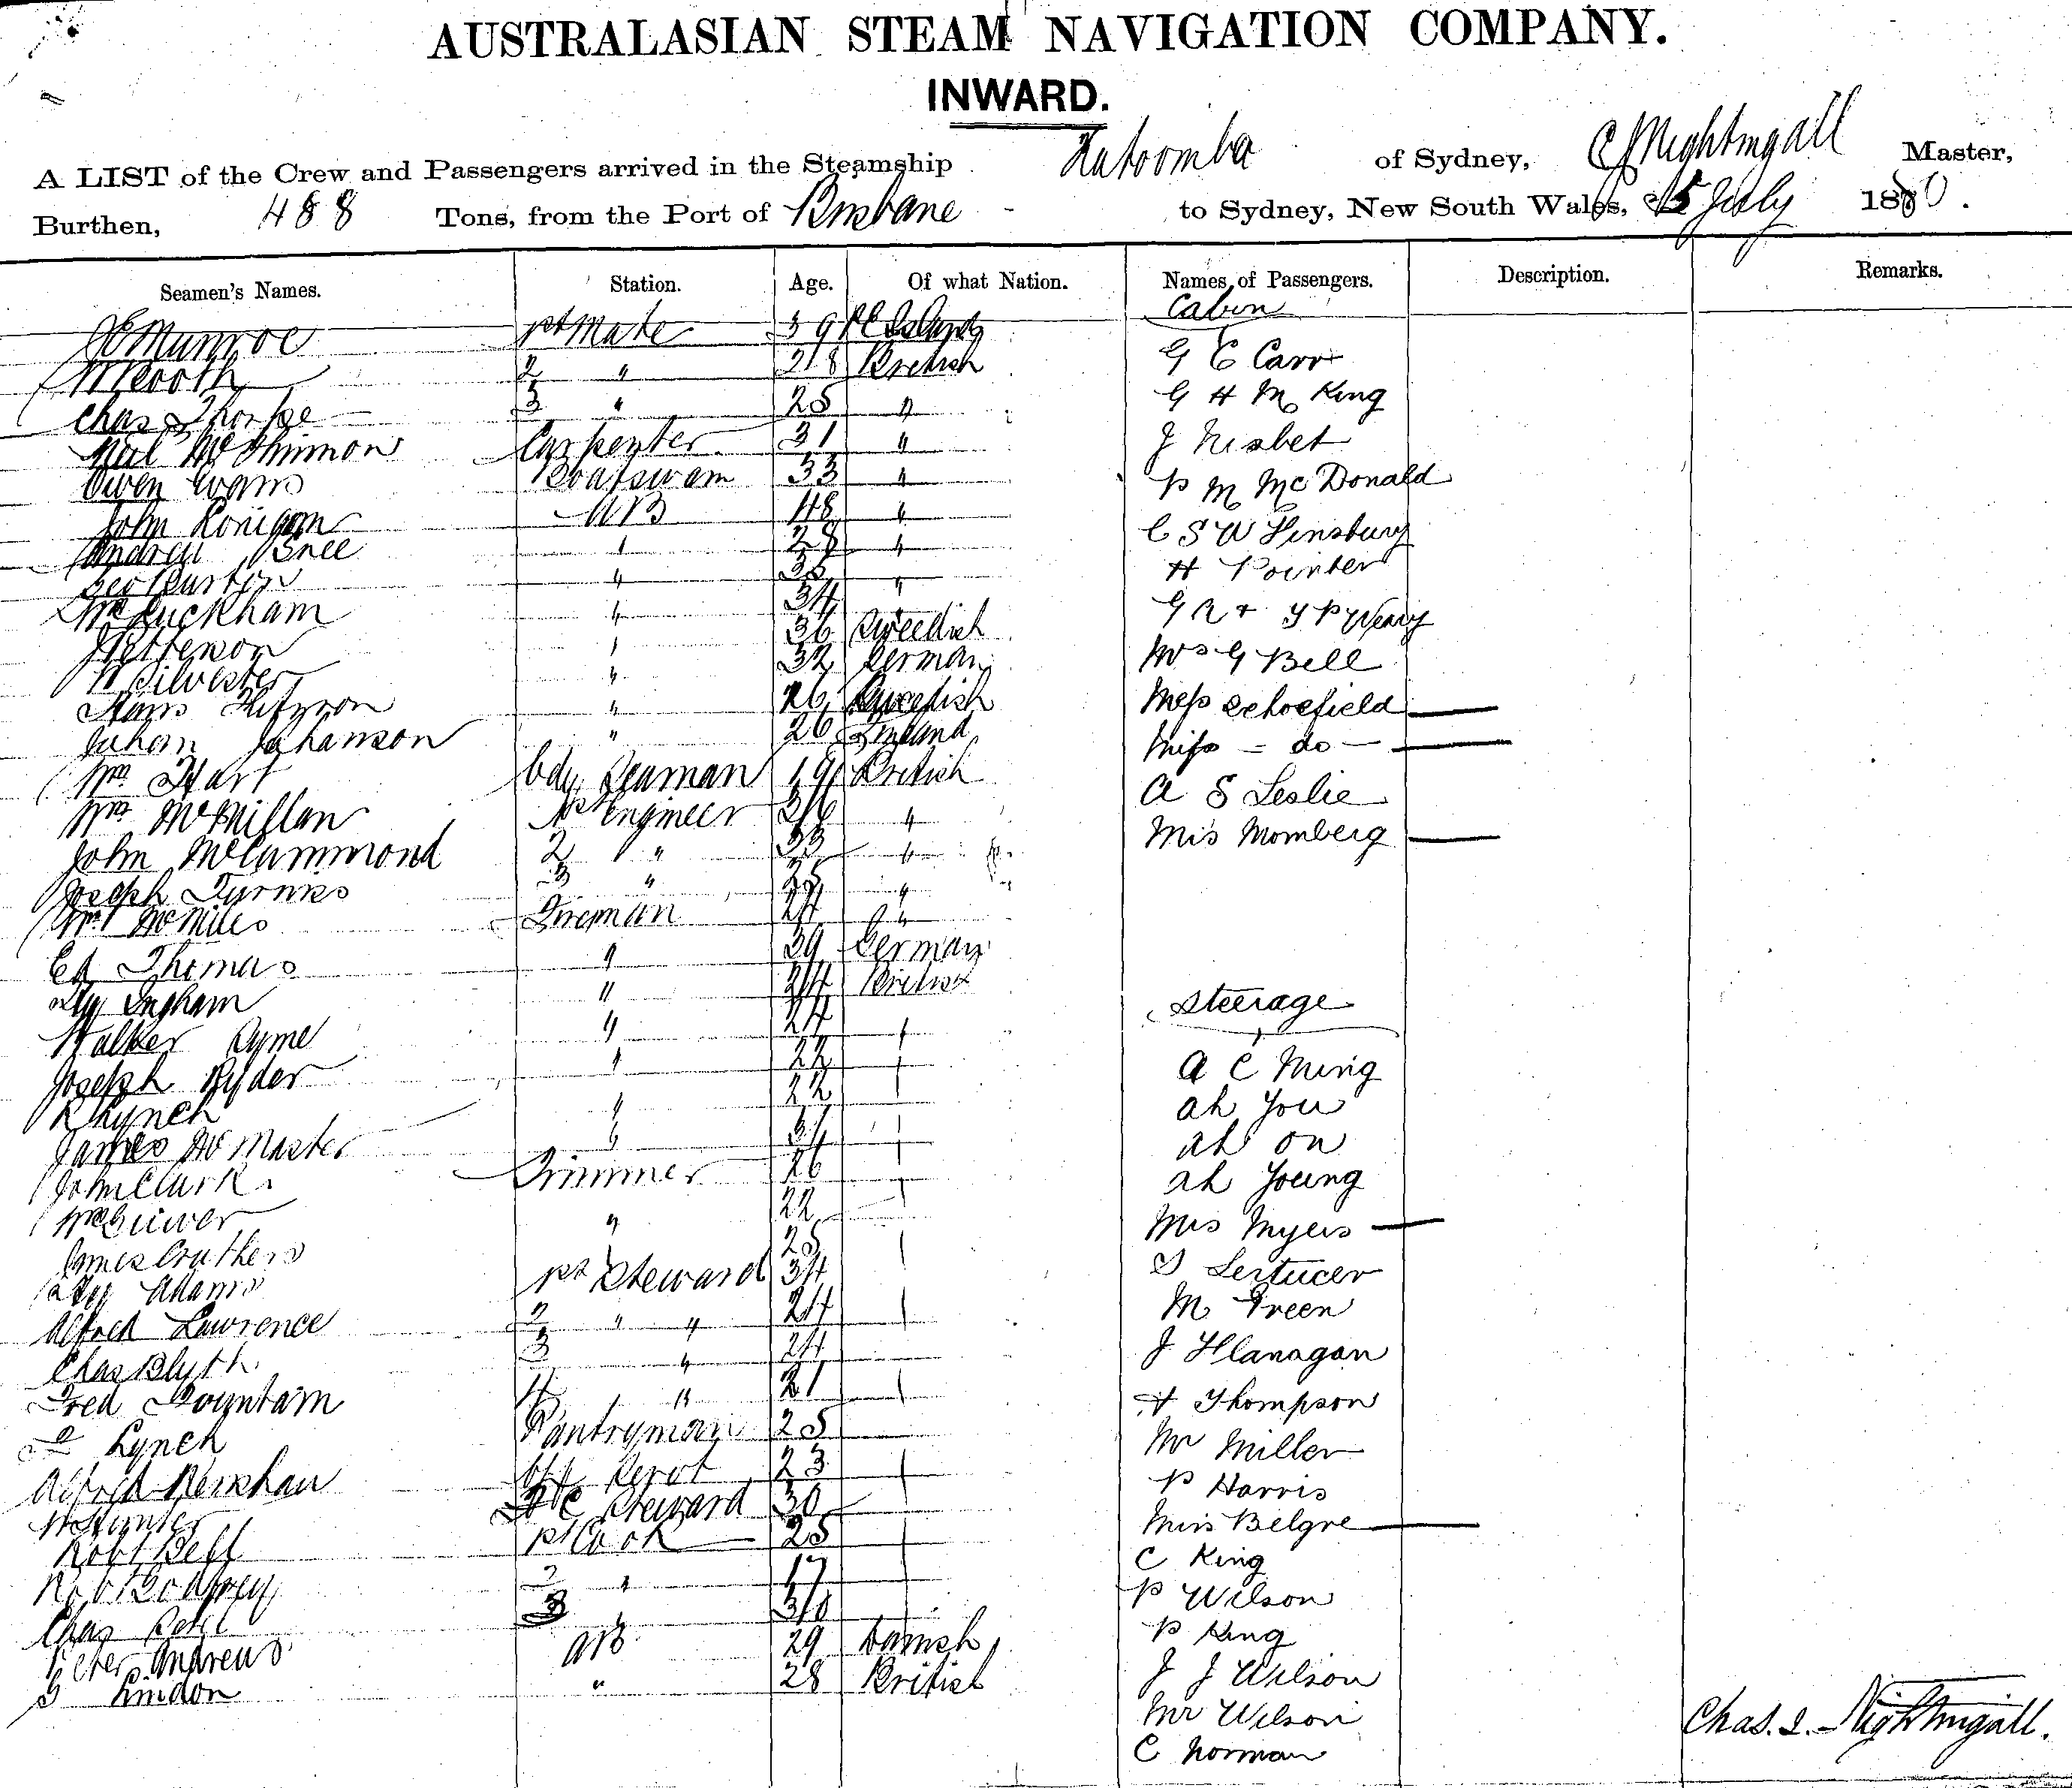 AUSTRALASIAN STEAM NAVIGATION COMPANY.
INWARD.
A LIST of the Crew and Passengers arrived in the Steamship Katoomba of Sydney, C J Nightingall Master,
Burthen, 488 Tons, from the Port of Brisbane to Sydney, New South Wales, 15 July 1880.
Seamen's Names. Station. Age. Of what Nation. Names of Passengers. Description. Remarks.
Cabin
Munroe 1st Mate 39
2 " 28 British G E Carr
Chas Thorpe 3 " 25 " G H M King
Neil McKinnon Carpenter 31 " J Nisbet
Owen Evans Boatswain 33 " P M McDonald
John AB 48 " C S W Finsbury
Andrew " 28 " H Pointer
Geo Burton " "
Wm Luckham " 34
Petterson " 36 Sweedish Mrs G Bell
Silvester " 32 German
Hans " 26 Swedish Miss Schoefield
Johan Johanson " 26 Finland Miss - do -
Wm Hart Ody Seaman 19 British A S Leslie
Wm McMillan 1st Engineer 36 " Mrs Momberg
John McCammond 2 " 33 "
Joseph 3 " 25 "
Wm Fireman 24 "
Ed Thomas " 39 German
Ingham " 24 British Steerage
Walker Ryme " 24
Joseph Ryder " 22 A C Ming
R Lynch " 22 Ah You
James McMaster " 34 Ah On
John Clark Trimmer 26 Ah Young
" 22 Mrs Myers
James Cruthers 25
Adams 1st Steward 34 M Green
Alfred Lawrence 2 " " 24 J Flanagan
Chas Blyth 3 " 24 H Thompson
Fred Fountain 4 " 21
Lynch Pantryman 25 Mr Miller
Alfred Kershaw 23 P Harris
W Hunter F C Steward 30 Miss Belgre
Robt Bell 1st Cook 25 C King
Robt Godfrey 2 " 17 P Wilson
Chas 3 " P King
Peter Andrews AB 29 Danish J J Wilson
Lindon " 28 British Mr Wilson
C Norman
Chas. J. Nightingall.